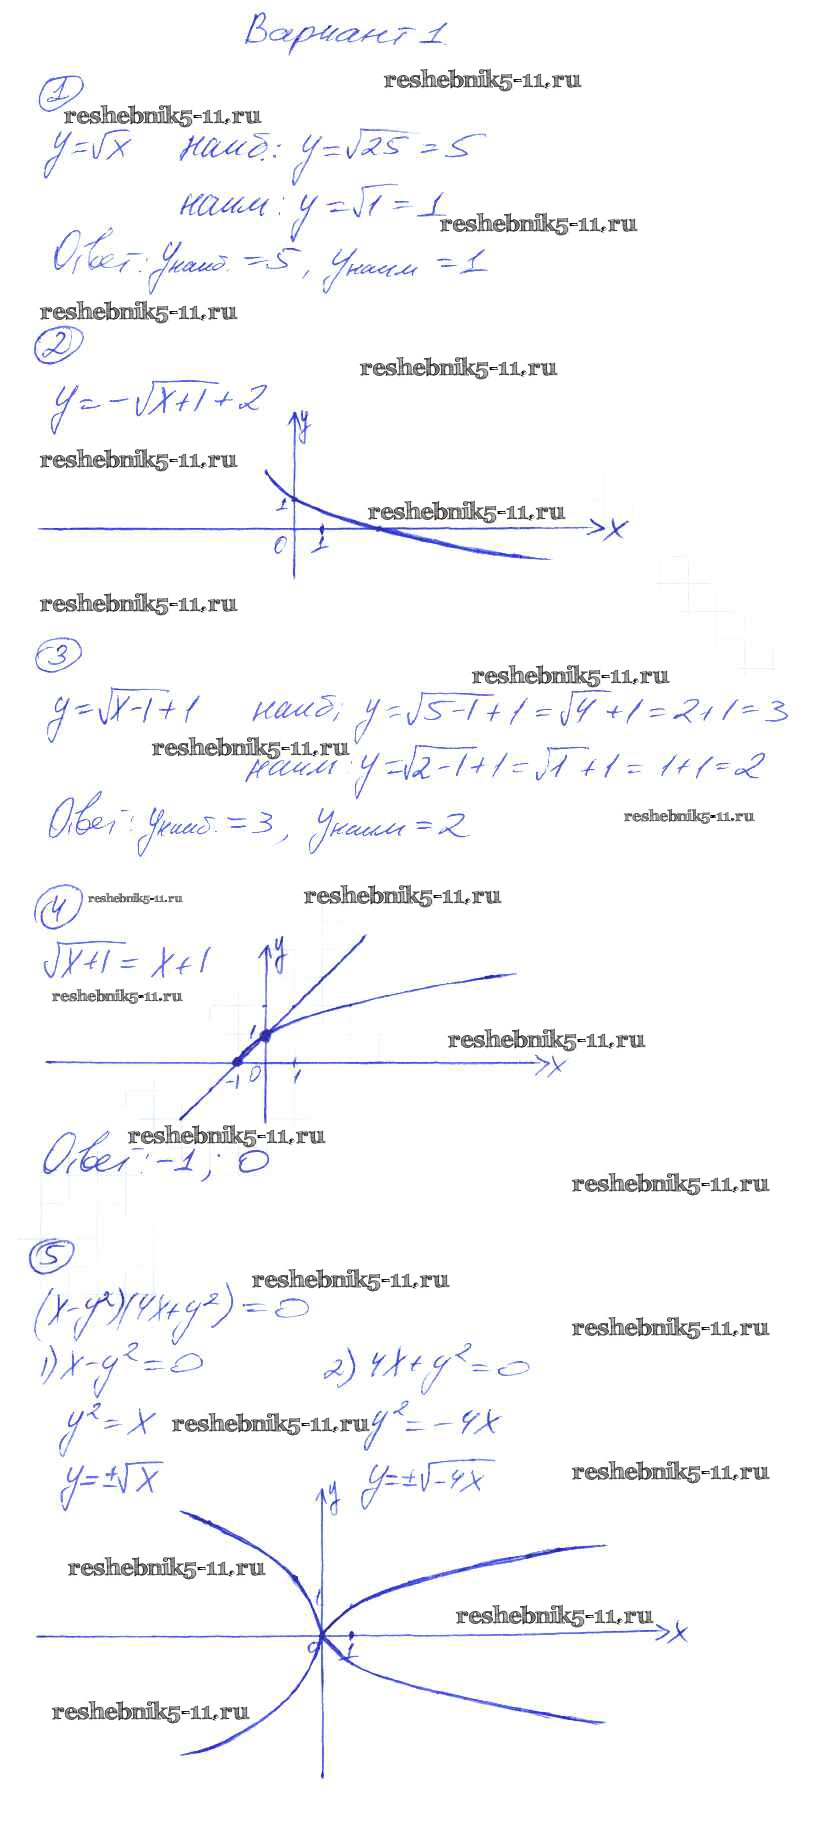 Вариант 1.
reshebnik5-11.ru
1
reshebnik5-11.ru
y=√x наиб.: y=√25 = 5
наим: y=√1 = 1
reshebnik5-11.ru
Ответ: yнаиб. =5, yнаим =1
reshebnik5-11.ru
2
reshebnik5-11.ru
y=-√x+1+2
y
reshebnik5-11.ru
1
reshebnik5-11.ru
0 1 x
reshebnik5-11.ru
3
reshebnik5-11.ru
y=√x-1+1 наиб: y=√5-1+1=√4+1=2+1=3
reshebnik5-11.ru
наим: y=√2-1+1=√1+1=1+1=2
Ответ: yнаиб. =3, yнаим=2
reshebnik5-11.ru
4
reshebnik5-11.ru
reshebnik5-11.ru
√x+1 = x+1
y
reshebnik5-11.ru
1
reshebnik5-11.ru
-1 0 1 x
reshebnik5-11.ru
Ответ: -1; 0
reshebnik5-11.ru
5
reshebnik5-11.ru
(x-y²)(4x+y²)=0
reshebnik5-11.ru
1) x-y²=0 2) 4x+y²=0
y²=x reshebnik5-11.ru y²=-4x
y=±√x y=±√-4x
reshebnik5-11.ru
y
reshebnik5-11.ru
1
reshebnik5-11.ru
0 1 x
reshebnik5-11.ru